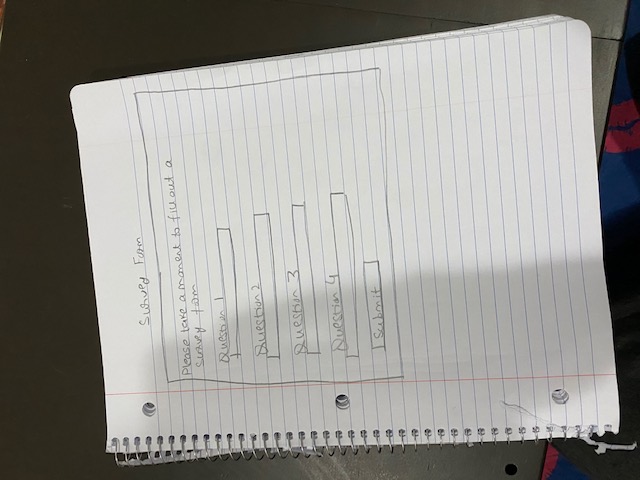 Survey Form
Please take a moment to fill out a
survey form
Question 1
Question 2
Question 3
Question 4
Submit